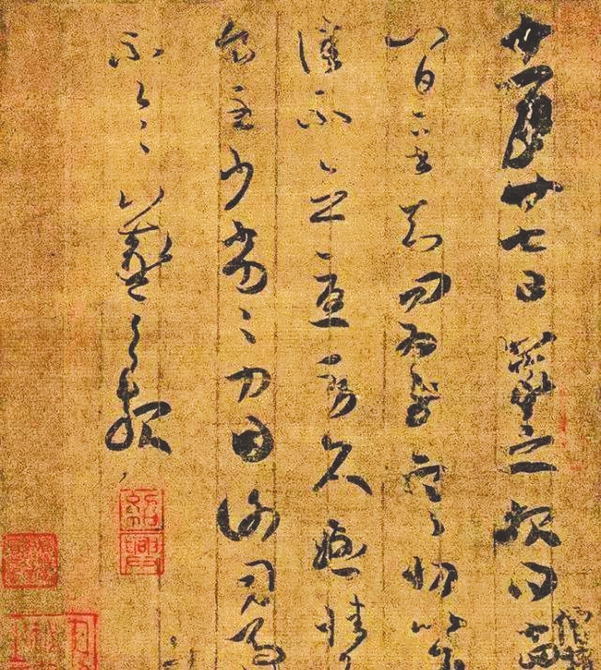 十一月廿七日羲之報得十
八日二書知問為慰寒切比
佳不念憂勞久懸情
食至少劣〻力因謝司馬
不一〻羲之報
紹興